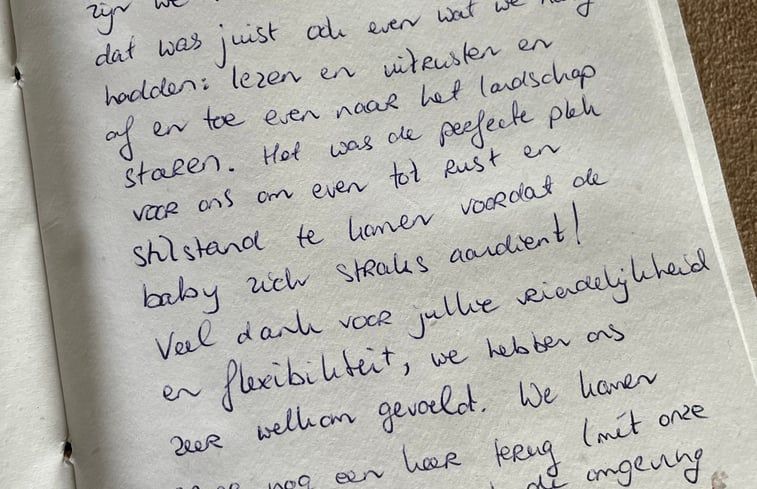 zijn we
dat was juist ook even wat we nodig
hadden: lezen en uitrusten en
af en toe even naar het landschap
staren. Het was de perfecte plek
voor ons om even tot rust en
stilstand te komen voordat de
baby zich straks aandient!
Veel dank voor jullie vriendelijkheid
en flexibiliteit, we hebben ons
zeer welkom gevoeld. We komen
nog een keer terug (mét onze
de omgeving